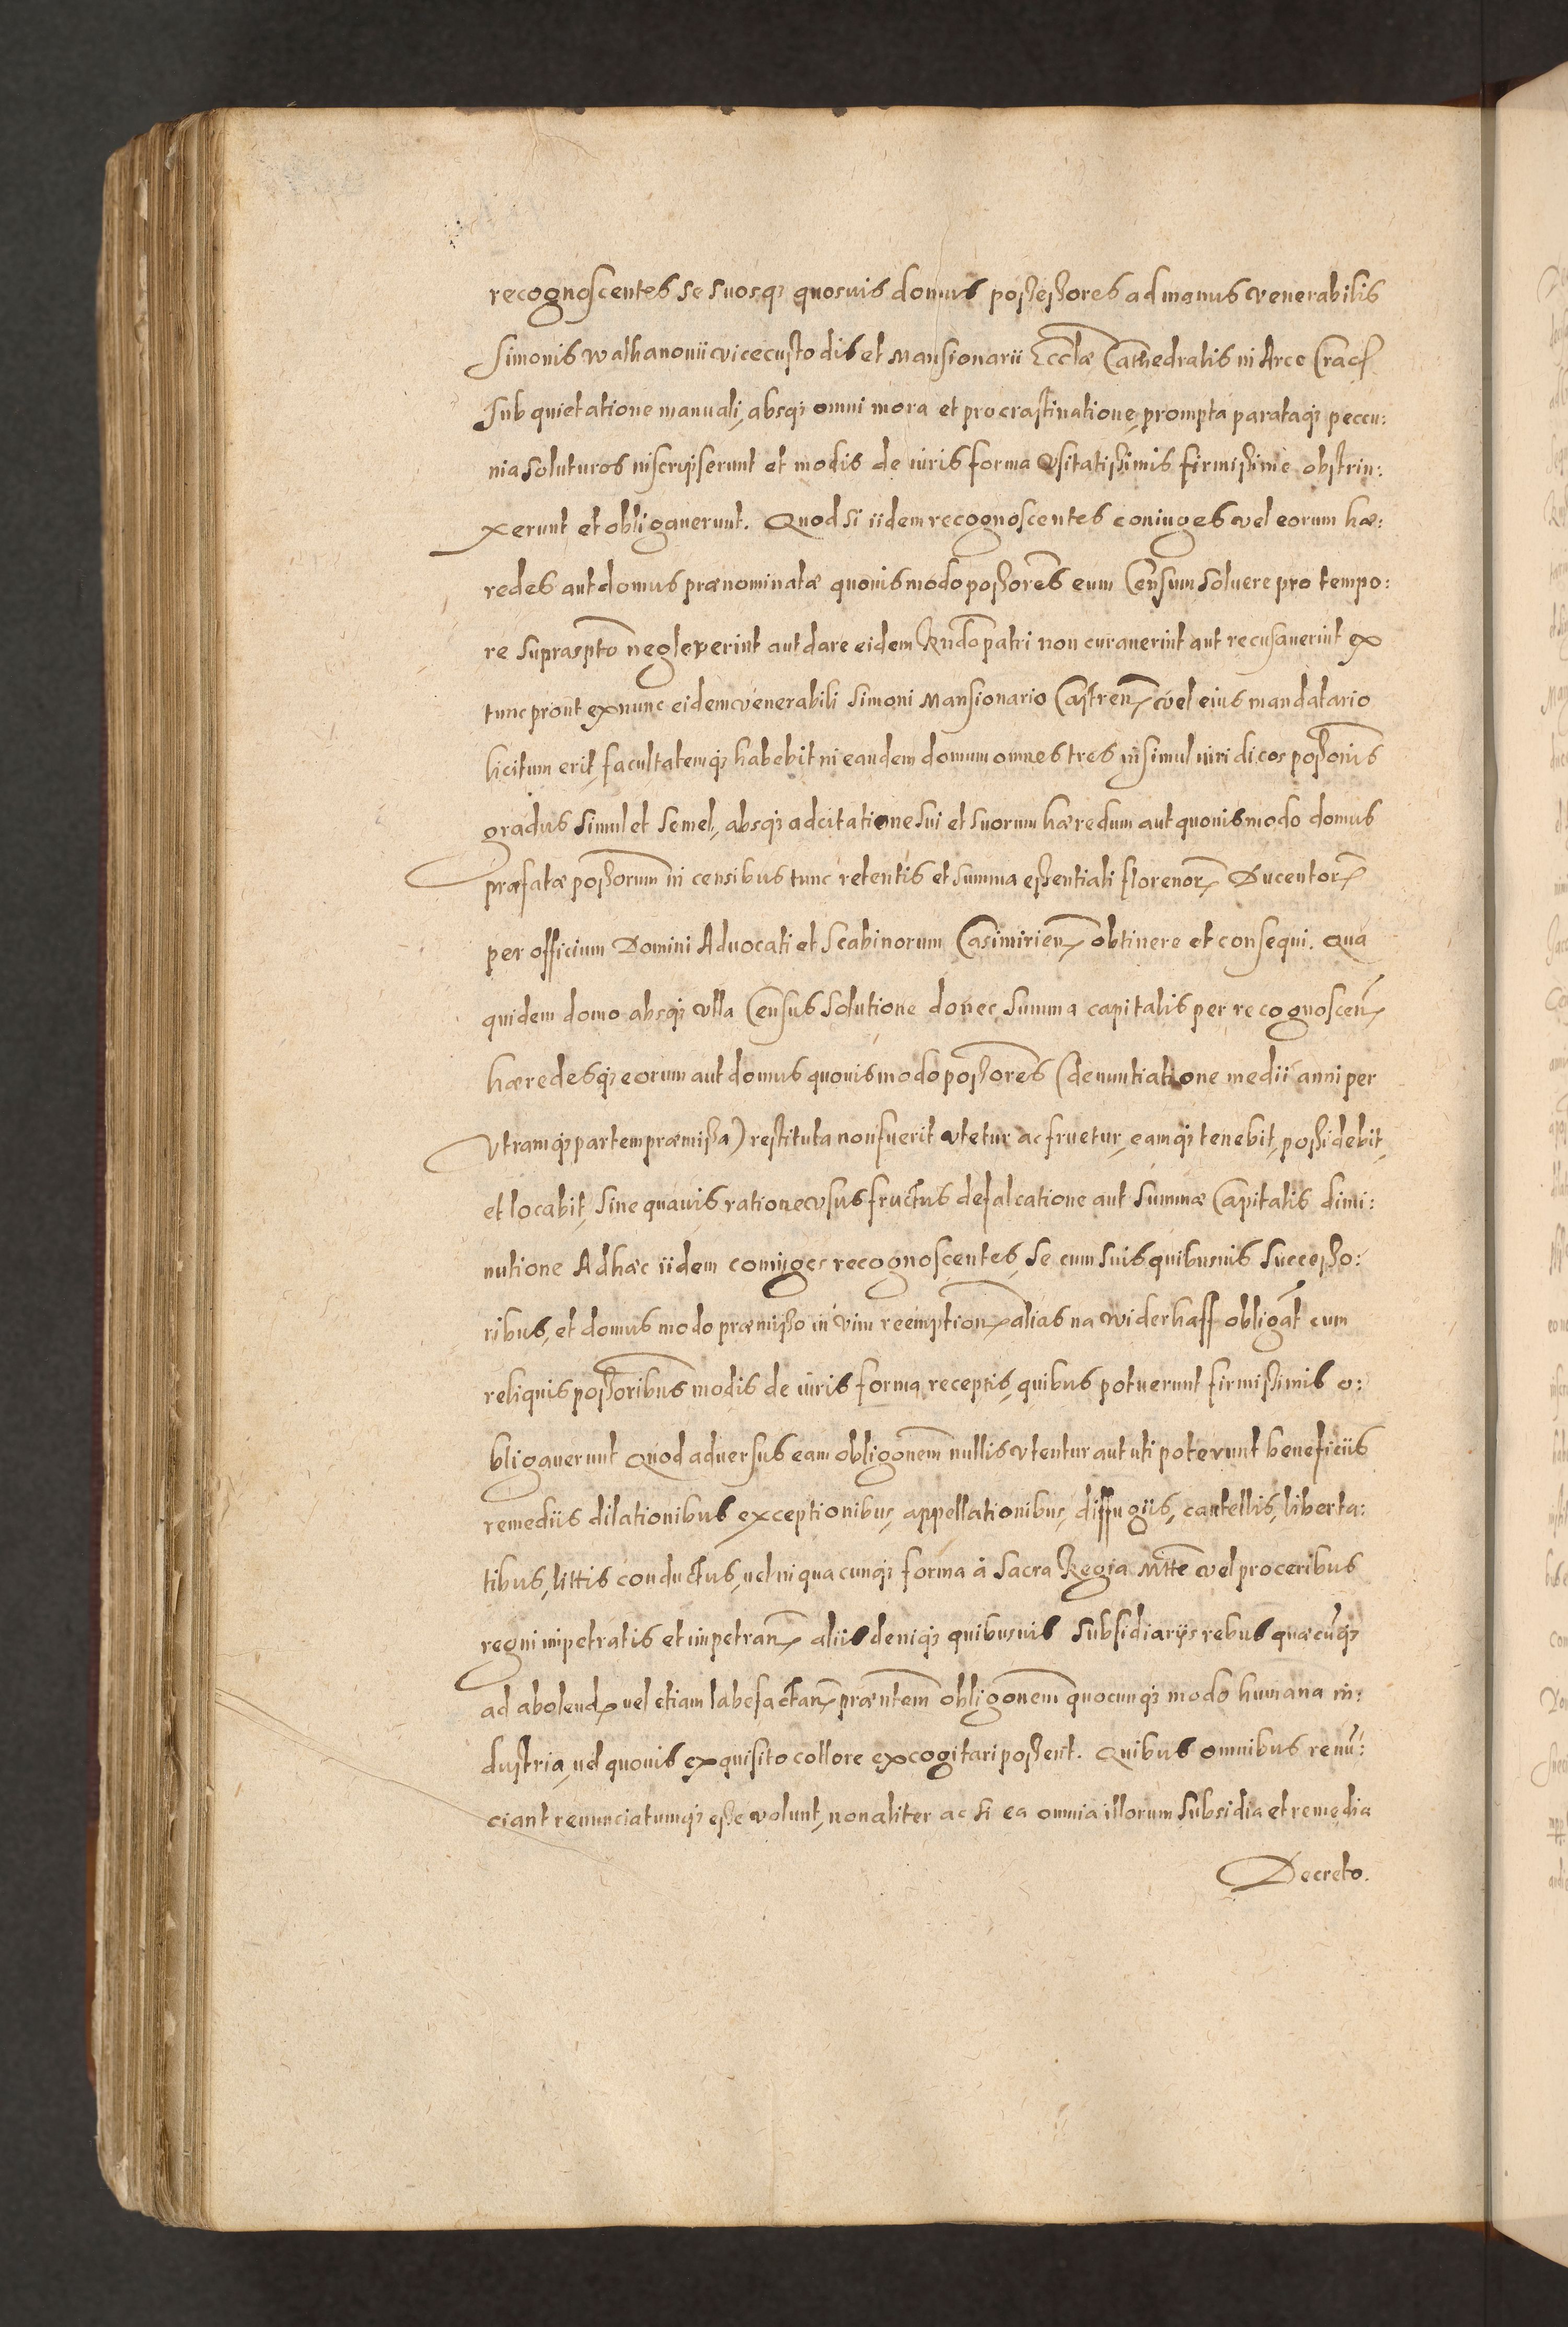 recognoscentes se suosq; quosuis domus possessores ad manus venerabilis
Simonis Walhanouii vicecustodis et Mansionarii Eccłæ Cathedralis in Arce Cracȝ
sub quietatione manuali, absq; omni mora et procrastinatione, prompta parataq; peccu:
nia soluturos inscripserunt et modis de iuris forma vsitatissimis firmissime obstrin:
xerunt et obligauerunt. Quod si iidem recognoscentes coniuges vel eorum hæ:
redes aut domus prænominatæ quouis modo possores eum Censum soluere pro tempo:
re suprasptō neglexerint aut dare eidem Rndō patri non curauerint aut recusauerint ex
tunc prout ex nunc eidem venerabili Simoni Mansionario Castren vel eius mandatario
licitum erit, facultatemq; habebit in eandem domum omnes tres insimul iuridicos possonis
gradus simul et semel, absq; adcitatione sui et suorum hæredum aut quouismodo domus
præfatæ possorum in censibus tunc retentis et summa essentiali florenor Ducentor
per officium Domini Aduocati et Scabinorum Casimirien obtinere et consequi. Qua
quidem domo absq; vlla Census solutione donec summa capitalis per recognoscen
hæredesq; eorum aut domus quouismodo possores (denuntiatione medii anni per
Vtramq; partem præmissa) restituta non fuerit vtetur ac fruetur, eamq; tenebit, possidebit,
et locabit, sine quauis ratione vsusfructus defalcatione aut summæ Capitalis dimi:
nutione Adhæc iidem coniuges recognoscentes, se cum suis quibusuis successo:
ribus, et domus modo præmisso in vim reemption alias na widerkaff obligāt cum
reliquis possoribus modis de iuris forma receptis, quibus potuerunt firmissimis o:
bligauerunt Quod aduersus eam obligonem nullis vtentur aut uti poterunt beneficiis
remediis dilationibus exceptionibus, appellationibus, diffugiis, cautellis, liberta:
tibus, littis conductus, uel in quacunq; forma à Sacra Regia Mtte vel proceribus
regni impetratis et impetran aliis deniq; quibusuis subsidiarijs rebus quæcūq;
ad abolend uel etiam labefactan præntem obligonem quocunq; modo humana in:
dustria, uel quouis exquisito collore excogitari possent. Quibus omnibus renū:
ciant renunciatumq; esse volunt, non aliter ac si ea omnia illorum subsidia et remedia
Decreto.